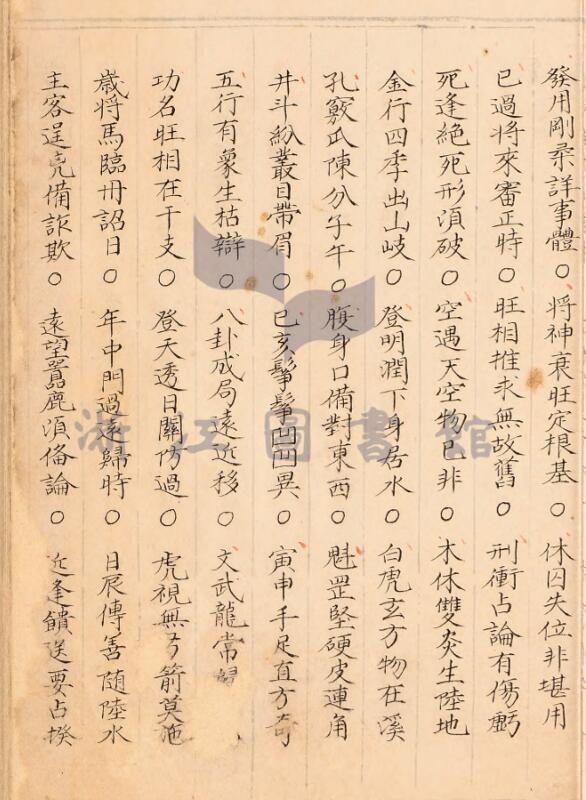 發用剛柔詳事體○將神衰旺定根基○休囚失位非堪用
已過將來審正時○旺相推求無故舊○刑衝占論有傷虧
死逢絕死形湏破○空遇天空物已非○木休雙炎生陸地
金行四季出山岐○登明潤下身居水○白虎玄方物在溪
孔竅瓜陳分子午○腹身口備對東西○魁罡堅硬皮連角
井斗紛叢目帶眉○巳亥髼髼凹凹異○寅申手足直方奇
五行有象生枯辯○八卦成局遠近移○文武龍常
功名旺相在干支○登天透日關防過○虎視無 箭莫
歲將馬臨丹詔日○年中門過遠歸時○日辰傳善隨陸水
主客逞亮備詐欺○遠望翯鹿湏倫論○近逢饋送要占揆
浙江圖書館